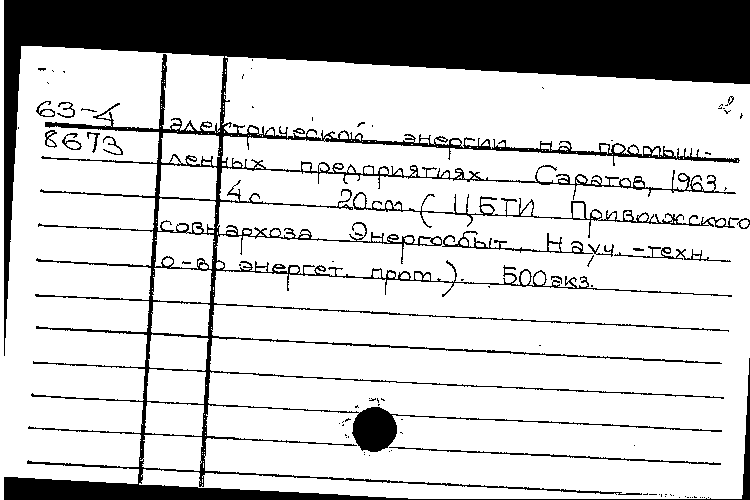 2.
63-4
8673
электрической энергии на промыш-
ленных предприятиях. Саратов, 1963.
4с 20см. (ЦБТИ Приволжского
совнархоза Энергосбыт. Науч.-техн.
о-во энергет. пром.). 500экз.